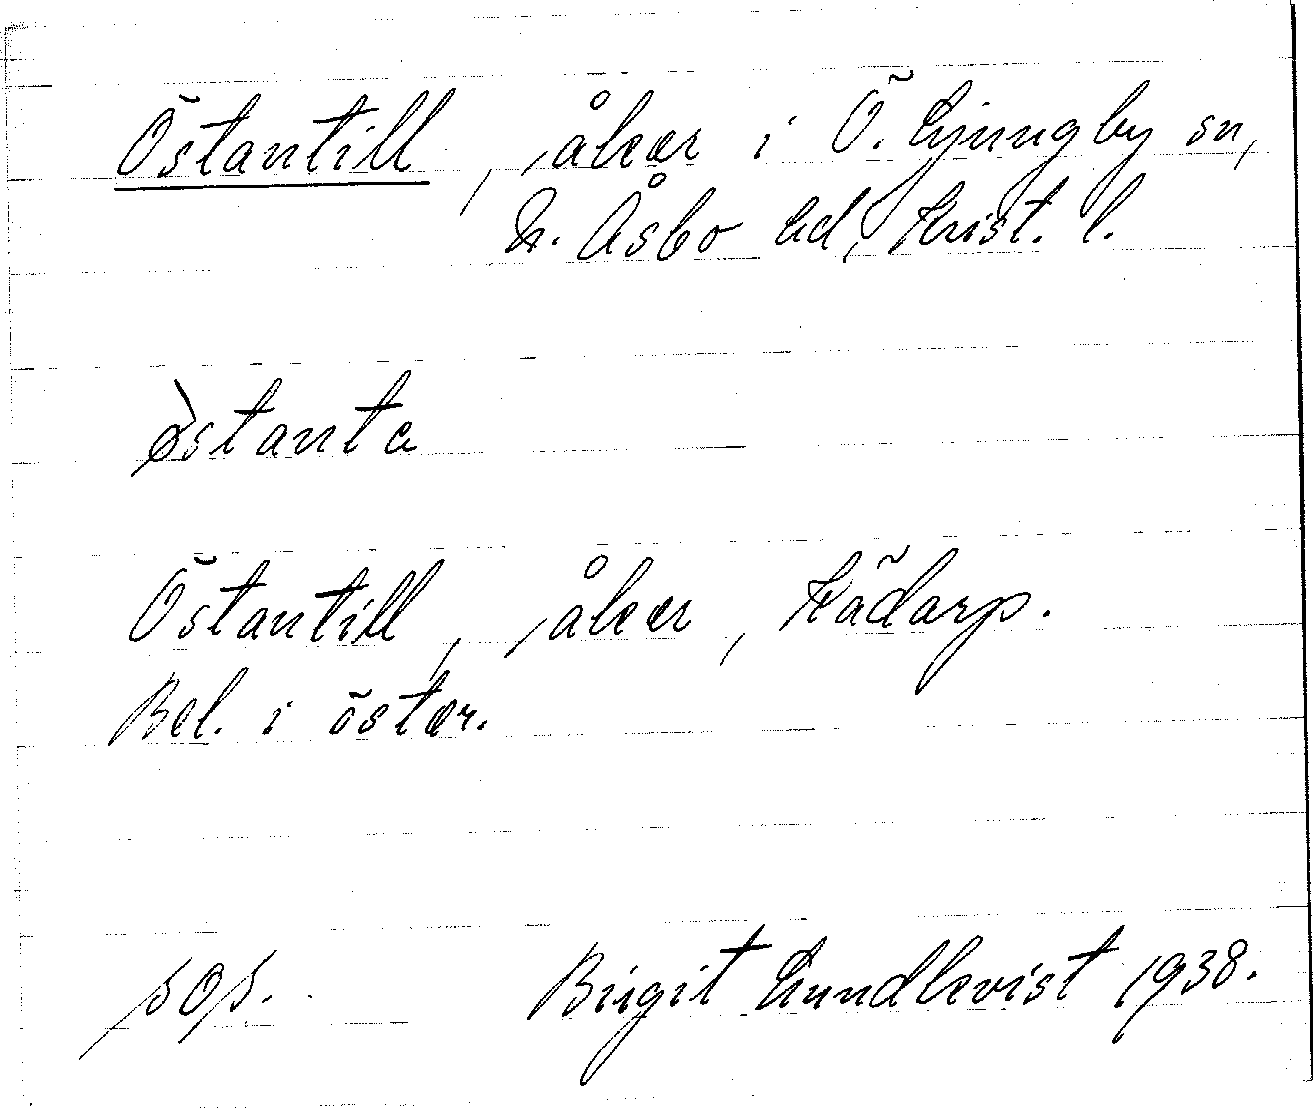 Östantill, åker i Ö. Ljungby sn,
N. Åsbo hd, Krist. l.
østanta
Östantill, åker, Kädarp.
Bel. i öster.
sos. Birgit Lundkvist 1938.